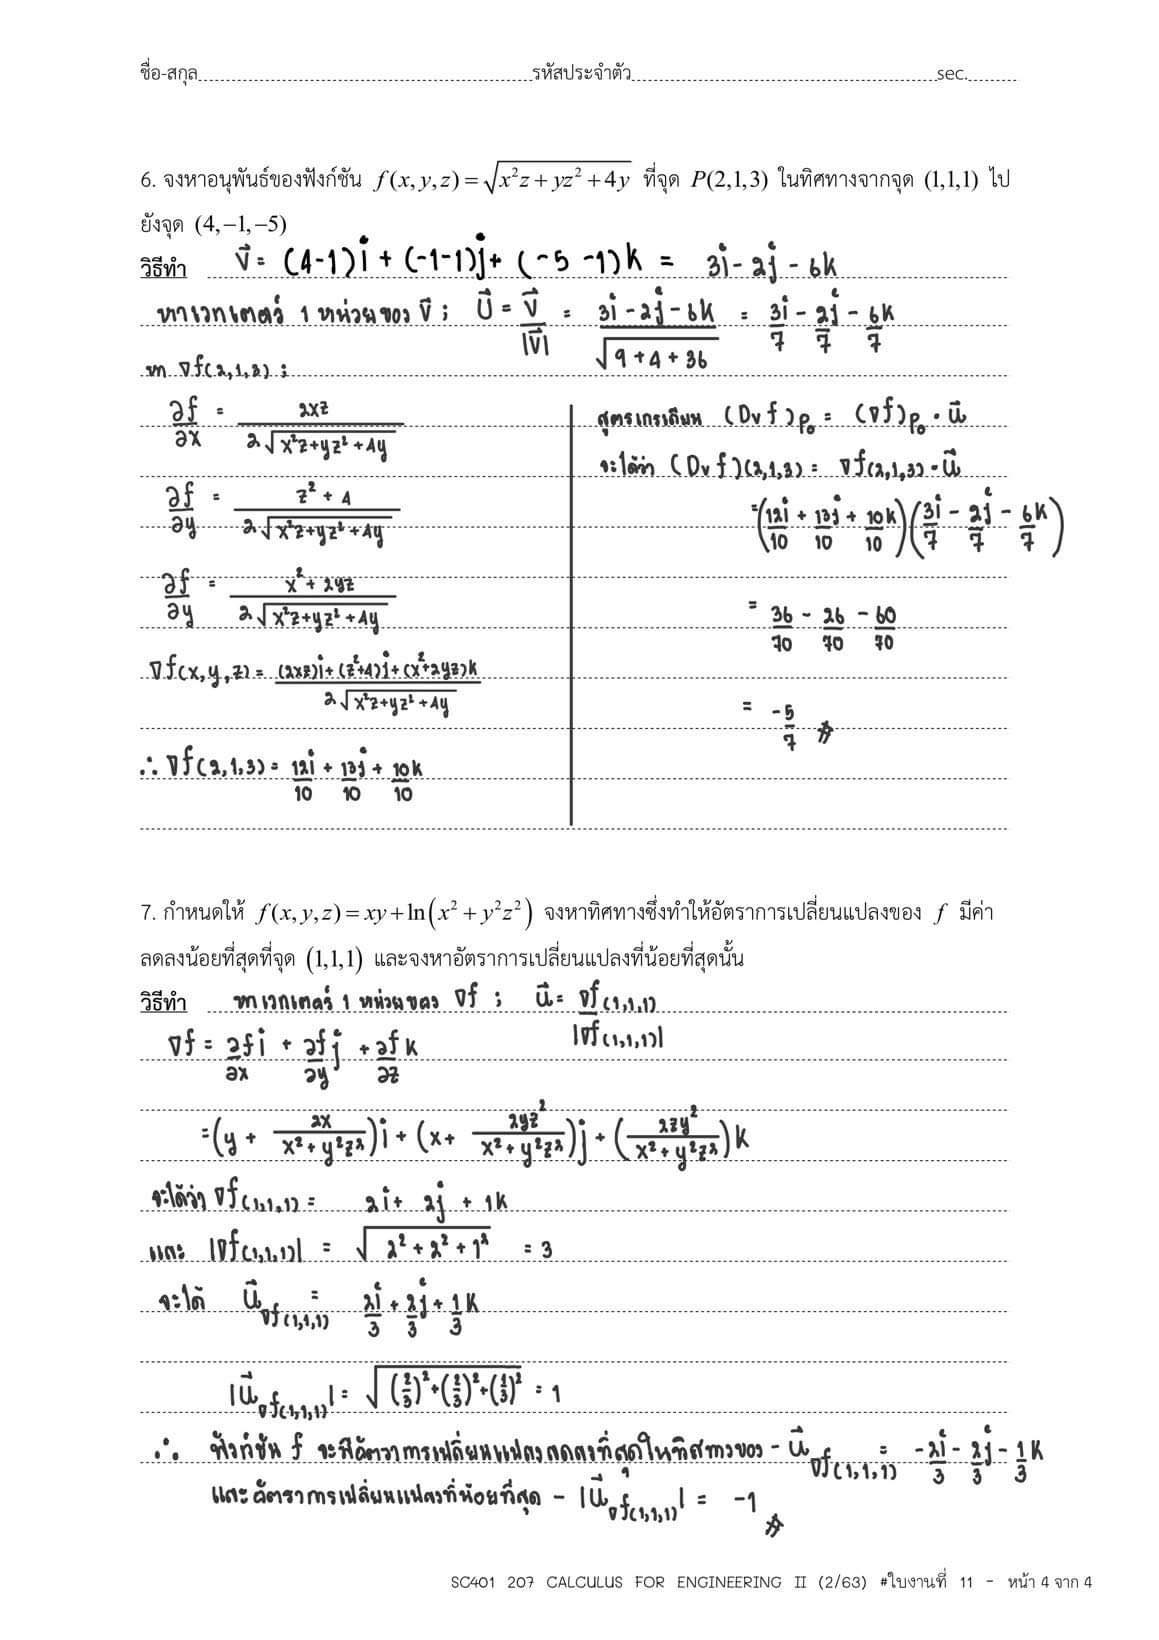 ชื่อ-สกุล รหัสประจำตัว sec.
6. จงหาอนุพันธ์ของฟังก์ชัน f(x,y,z)=√(x²z+yz²+4y) ที่จุด P(2,1,3) ในทิศทางจากจุด (1,1,1) ไป
ยังจุด (4,−1,−5)
วิธีทำ v⃗ = (4-1)i + (-1-1)j + (-5-1)k = 3i - 2j - 6k
หาเวกเตอร์ 1 หน่วยของ v⃗ ; u⃗ = v⃗/|v⃗| = (3i - 2j - 6k)/√(9+4+36) = 3i/7 - 2j/7 - 6k/7
หา ∇f(2,1,3) ;
∂f/∂x = 2xz/(2√(x²z+yz²+4y))
∂f/∂y = (z²+4)/(2√(x²z+yz²+4y))
∂f/∂y = (x²+2yz)/(2√(x²z+yz²+4y))
∇f(x,y,z) = ((2xz)i+(z²+4)j+(x²+2yz)k)/(2√(x²z+yz²+4y))
∴ ∇f(2,1,3) = 12i/10 + 13j/10 + 10k/10
สูตรเกรเดียน (Dvf)p₀ = (∇f)p₀ · u⃗
จะได้ว่า (Dvf)(2,1,3) = ∇f(2,1,3) · u⃗
= (12i/10 + 13j/10 + 10k/10)(3i/7 - 2j/7 - 6k/7)
= 36/70 - 26/70 - 60/70
= -5/7 #
7. กำหนดให้ f(x,y,z)=xy+ln(x²+y²z²) จงหาทิศทางซึ่งทำให้อัตราการเปลี่ยนแปลงของ f มีค่า
ลดลงน้อยที่สุดที่จุด (1,1,1) และจงหาอัตราการเปลี่ยนแปลงที่น้อยที่สุดนั้น
วิธีทำ หาเวกเตอร์ 1 หน่วยของ ∇f ; u⃗ = ∇f(1,1,1)/|∇f(1,1,1)|
∇f = ∂f/∂x i + ∂f/∂y j + ∂f/∂z k
= (y + 2x/(x²+y²z²))i + (x + 2yz²/(x²+y²z²))j + (2zy²/(x²+y²z²))k
จะได้ว่า ∇f(1,1,1) = 2i + 2j + 1k
และ |∇f(1,1,1)| = √(2²+2²+1²) = 3
จะได้ u⃗∇f(1,1,1) = 2i/3 + 2j/3 + 1/3 k
|u⃗∇f(1,1,1)| = √((2/3)²+(2/3)²+(1/3)²) = 1
∴ ฟังก์ชัน f จะมีอัตราการเปลี่ยนแปลงลดลงที่สุดในทิศทางของ - u⃗∇f(1,1,1) = -2i/3 - 2j/3 - 1/3 k
และอัตราการเปลี่ยนแปลงที่น้อยที่สุด - |u⃗∇f(1,1,1)| = -1 #
SC401 207 CALCULUS FOR ENGINEERING II (2/63) #ใบงานที่ 11 - หน้า 4 จาก 4